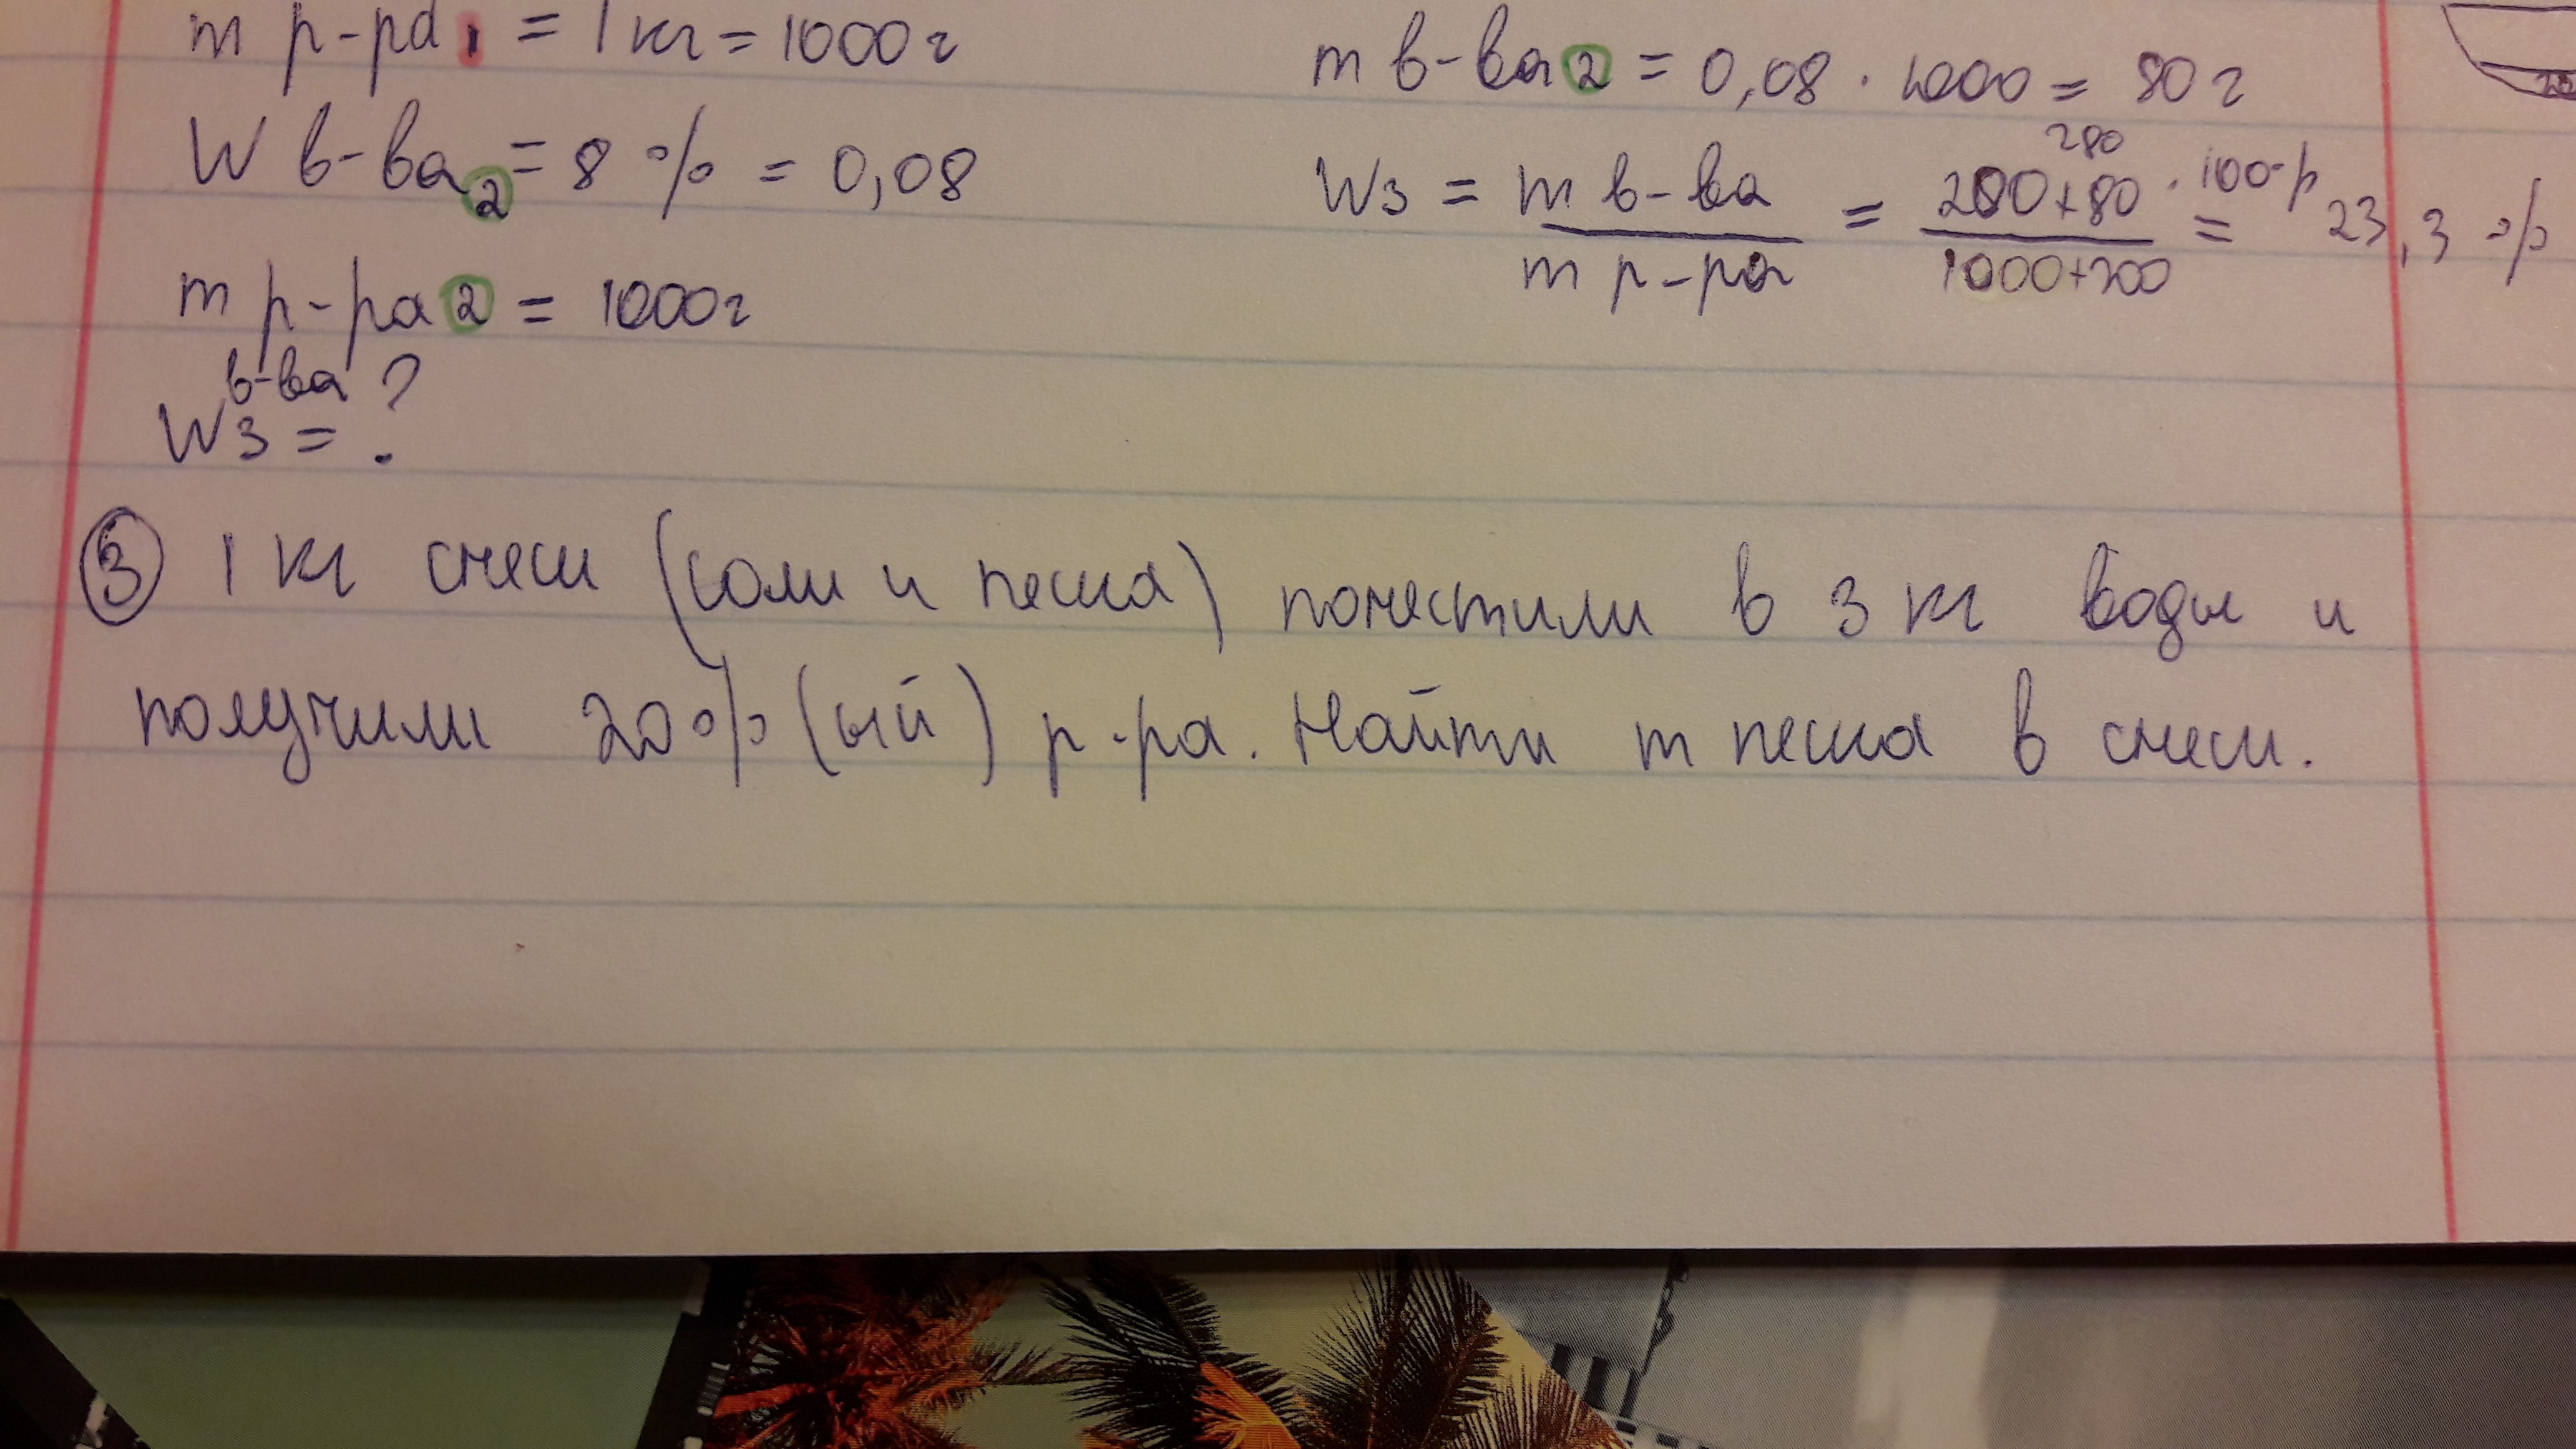 m р-ра 1 = 1 кг = 1000 г
W в-ва 2 = 8 % = 0,08
m р-ра 2 = 1000 г
в-ва ?
W3 = .
m в-ва 2 = 0,08 · 1000 = 80 г
280
W3 = m в-ва = 200+80 · 100% = 23,3 %
m р-ра 1000+200
③ 1 кг смеси (соли и песка) поместили в 3 кг воды и
получили 20% (ый) р-ра. Найти m песка в смеси.